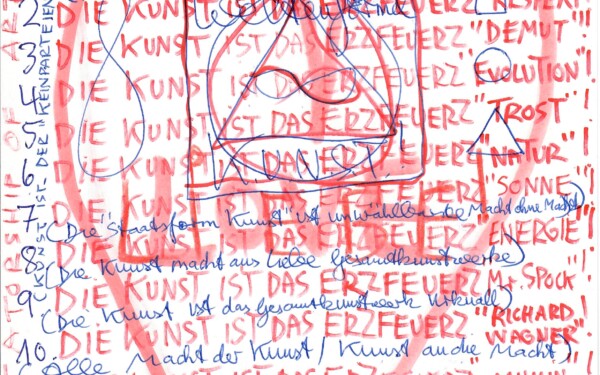 DIE KUNST IST DAS ERZFEUERZ "RESPEKT"!
2 DIE KUNST IST DAS ERZFEUERZ "DEMUT"!
3 DIE KUNST IST DAS ERZFEUERZ "EVOLUTION"!
4 DIE KUNST IST DAS ERZFEUERZ "TROST"!
5 DIE KUNST IST DAS ERZFEUERZ "NATUR"!
KUNST
6 DIE KUNST IST DAS ERZFEUERZ "SONNE"!
7 (Die "Staatsform Kunst" ist unwählbare Macht ohne Macht)
DIE KUNST IST DAS ERZFEUERZ ENERGIE"!
8 (Die Kunst macht aus Liebe Gesamtkunstwerke)
DIE KUNST IST DAS ERZFEUERZ Mr. SPOCK"
9 (Die Kunst ist das Gesamtkunstwerk Urknall)
DIE KUNST IST DAS ERZFEUERZ "RICHARD WAGNER"!
10 (Alle Macht der Kunst / Kunst an die Macht)
DIE KUNST IST DAS ERZFEUERZ
KUNST IST DER "KEINPARTEIEN
ATORSHIP OF ART